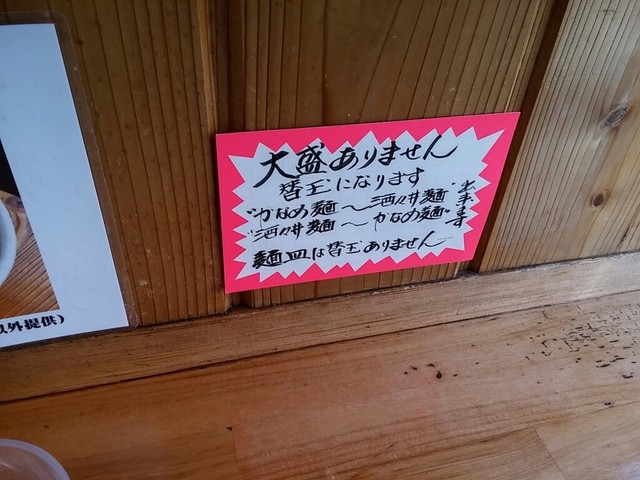 大盛ありません
替玉になります
"かなめ麺〜酒々井麺"
"酒々井麺〜かなめ麺"
出来ます
麺皿は替玉ありません
以外提供)